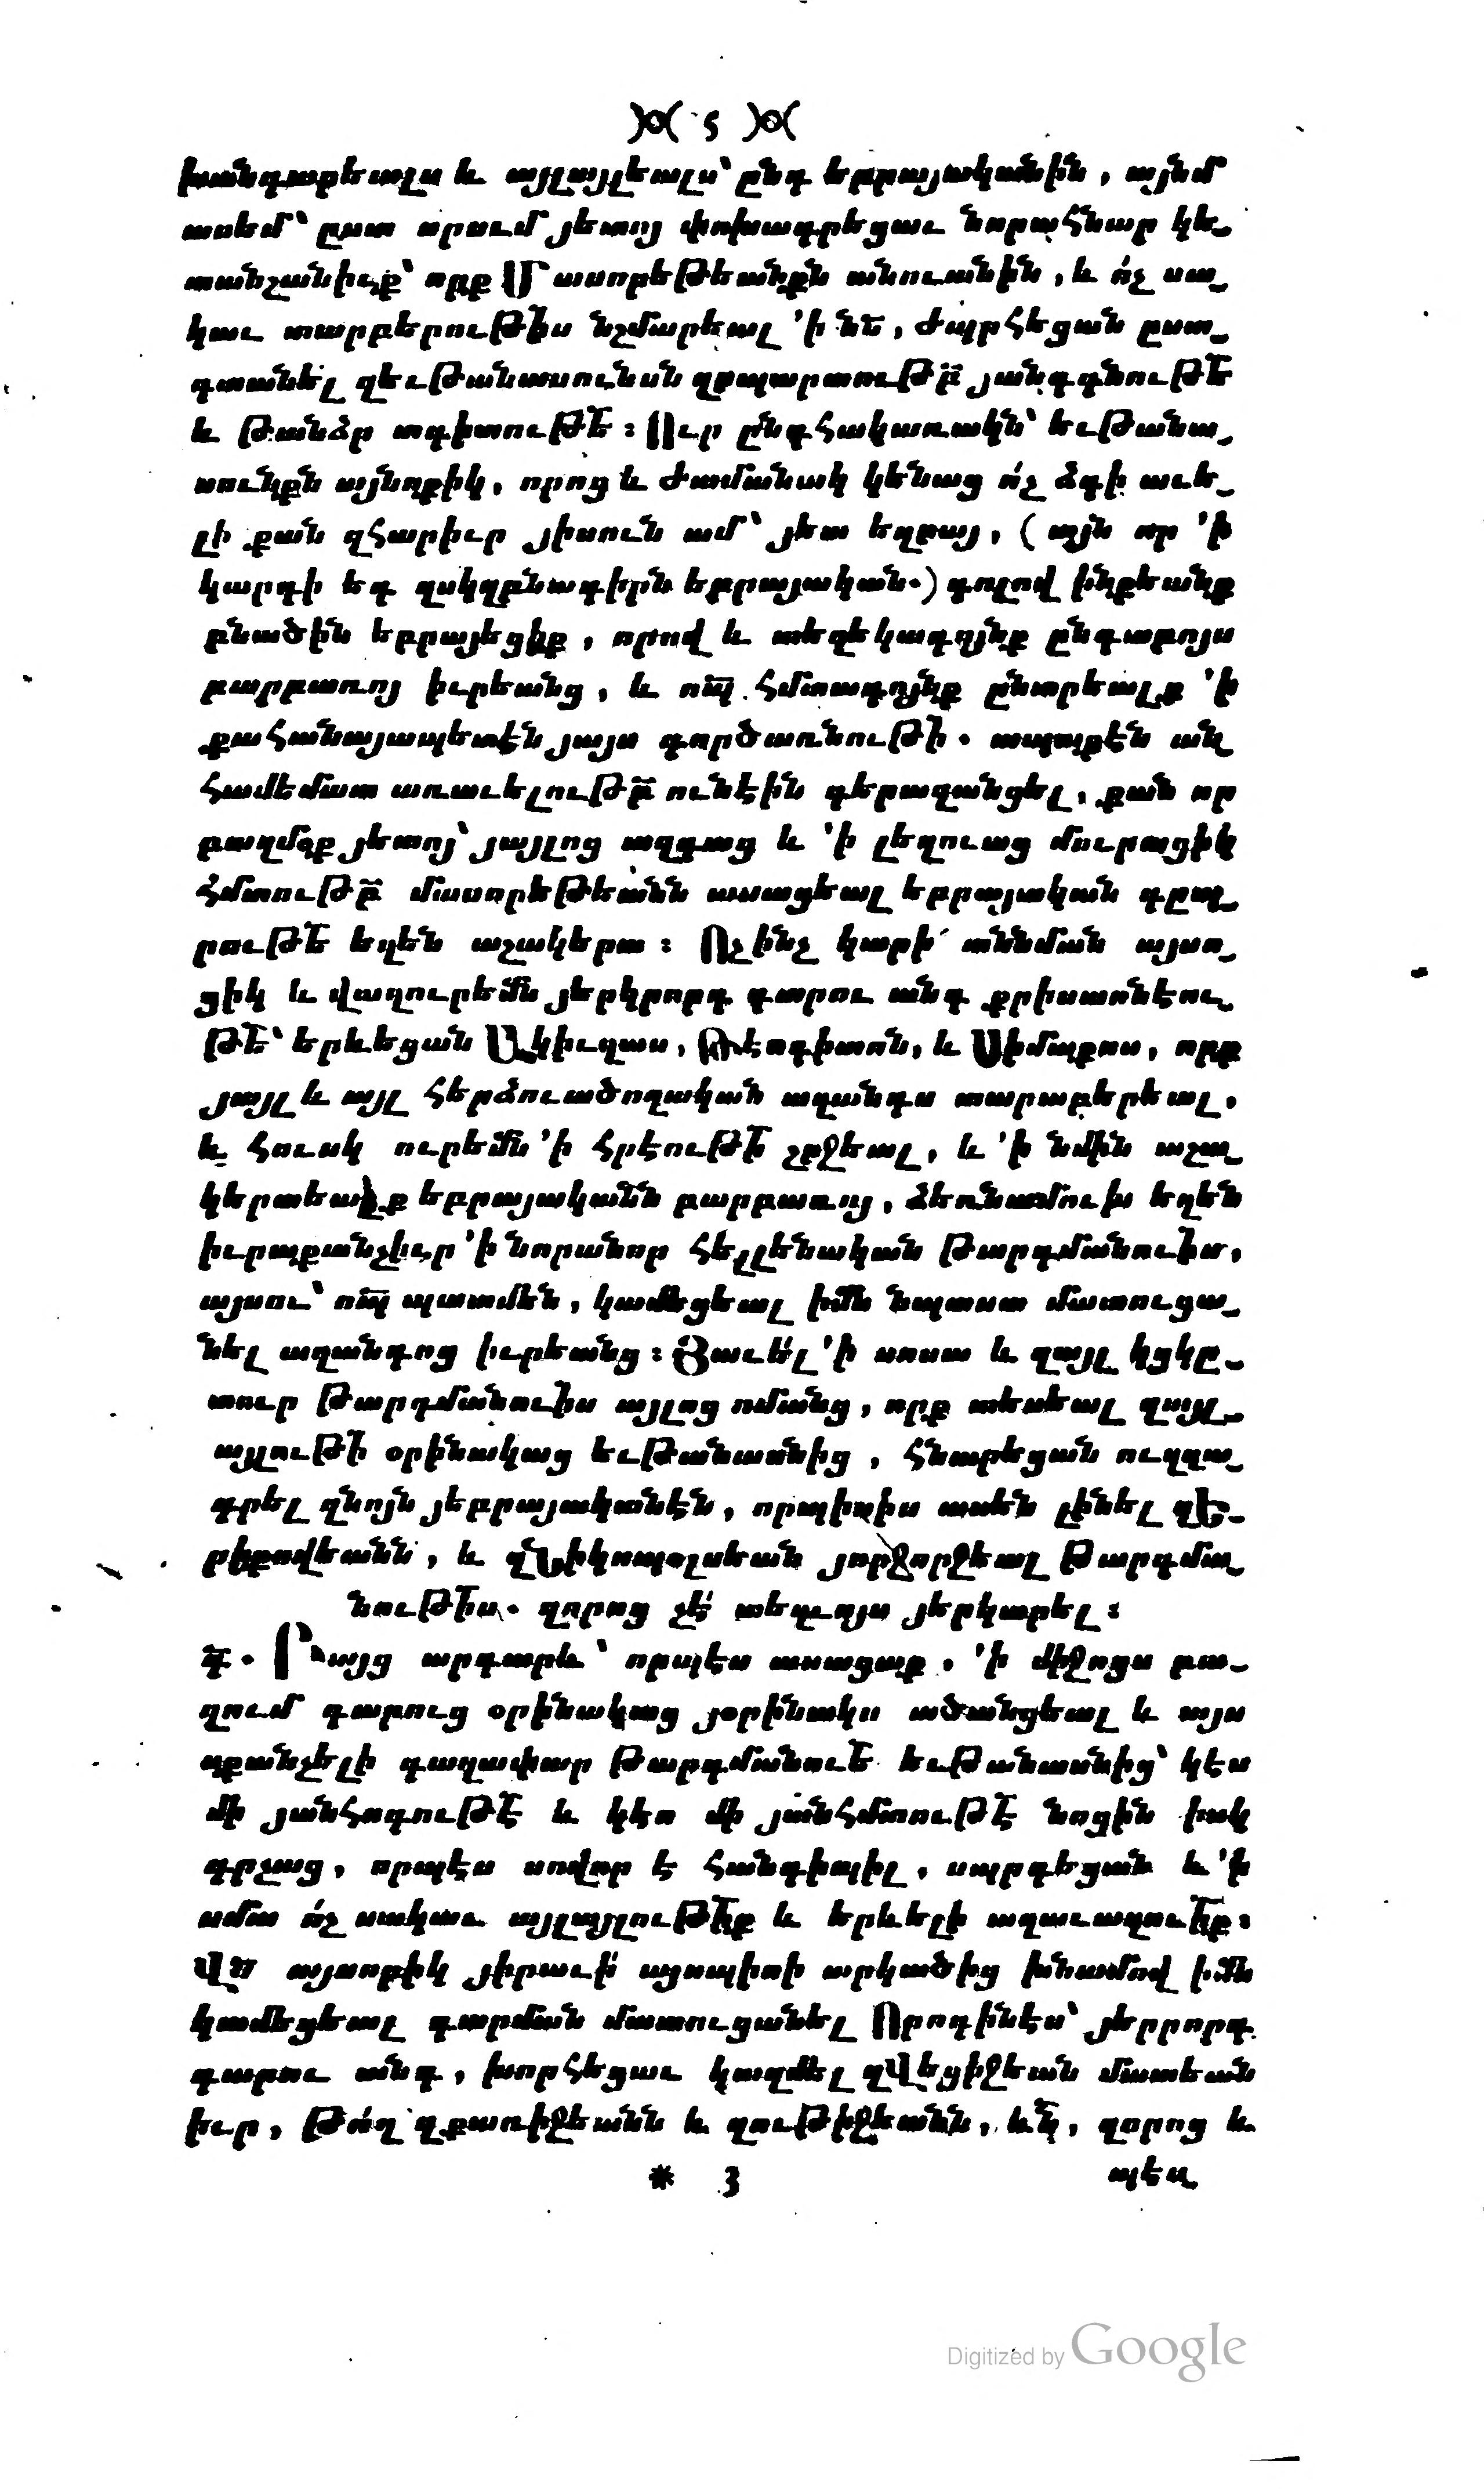 5
խանգարեալս և այլայլեալս՝ ընդ եբրայականին, այնմ
ասեմ՝ ըստ որում յետոյ փոխադրեցաւ նորահնար կե֊
տանշանիւք՝ որք Մասորեթեանքն անուանին, և ո՛չ սա֊
կաւ տարբերութիս նշմարեալ ՚ի նն, ժպրհեցան ըստ֊
գտանել զեւթանասունսն զպարտութբ յանգգնութե
և թանձր տգիտութե։ Ուր ընդհակառակն՝ եւթանա֊
սունքն այնոքիկ, որոց և ժամանակ կենաց ո՛չ ձգի աւե֊
լի քան զհարիւր յիսուն ամ՝ յետ եզրայ, (այն որ ՚ի
կարգի եդ զսկզբնագիրն եբրայական.) գոլով ինքեանք
բնածին եբրայեցիք, որով և տեղեկագոյնք ընդաբոյս
բարբառոյ իւրեանց, և ոպ հմտագոյնք ընտրեալք ՚ի
քահանայապետէն յայս գործառնութի. ապաքէն ան֊
համեմատ առաւելութբ ունէին գերազանցել, քան որ
բազմօք յետոյ՝ յայլոց ազգաց և ՚ի լեզուաց մուրացիկ
հմտութբ մասորեթեանն ստացեալ եբրայական դըպ֊
րութե եղեն աշակերտ։ Ոչինչ կարի աննման այսո֊
ցիկ և վաղուրեմն յերկրորդ դարու անդ քրիստոնէու֊
թե՝ երևեցան Ակիւղաս, Թէոդիտոն, և Սիմաքոս, որք
յայլ և այլ հերձուածողական աղանդս տարաբերեալ,
և հուսկ ուրեմն ՚ի հրէութի շրջեալ, և ՚ի նմին աշա֊
կերտեալք եբրայականն բարբառոյ, ձեռնամուխ եղեն
իւրաքանչիւր ՚ի նորանոր հելլենական թարգմանուիս,
այսու՝ ոպ պատմեն, կամեցեալ իմն նպաստ մատուցա֊
նել աղանդոց իւրեանց։ Յաւե՛լ ՚ի սոսա և զայլ կցկը֊
տուր թարգմանուիս այլոց ոմանց, որք տեսեալ զայլ֊
այլութի օրինակաց եւթանասնից, հնարեցան ուղղա֊
գրել զնոյն յեբրայականէն, որպիսիս ասեն լինել զԵ֊
րիքովեանն, և զՆիկոպօլսեան յորջորջեալ թարգմա֊
նութիս. զորոց չէ՛ տեղւոյս յերկարել։
դ. Բայց արդարև՝ որպէս ասացաք, ՚ի միջոցս բա֊
զում դարուց օրինակաց յօրինակս ածանցեալ և այս
սքանչելի գաղափար թարգմանուե եւթանասնից՝ կէս
մի յանհոգութէ և կէս մի յանհմտութէ նոցին իսկ
գրչաց, որպէս սովոր է հանդիպիլ, սպրդեցան և ՚ի
սմա ո՛չ սակաւ այլայլութիք և երևելի աղաւաղուիք։
Վս այսորիկ յիրաւի՛ այսպիսի արկածից խնամով իմն
կամեցեալ դարման մատուցանել Որոգինէս՝ յերրորդ
դարու անդ, խորհեցաւ կազմել զՎեցիջեան մատեան
իւր, թո՛ղ զքառիջեանն և զութիջեանն, ևն, զորոց և
* 3 պէս